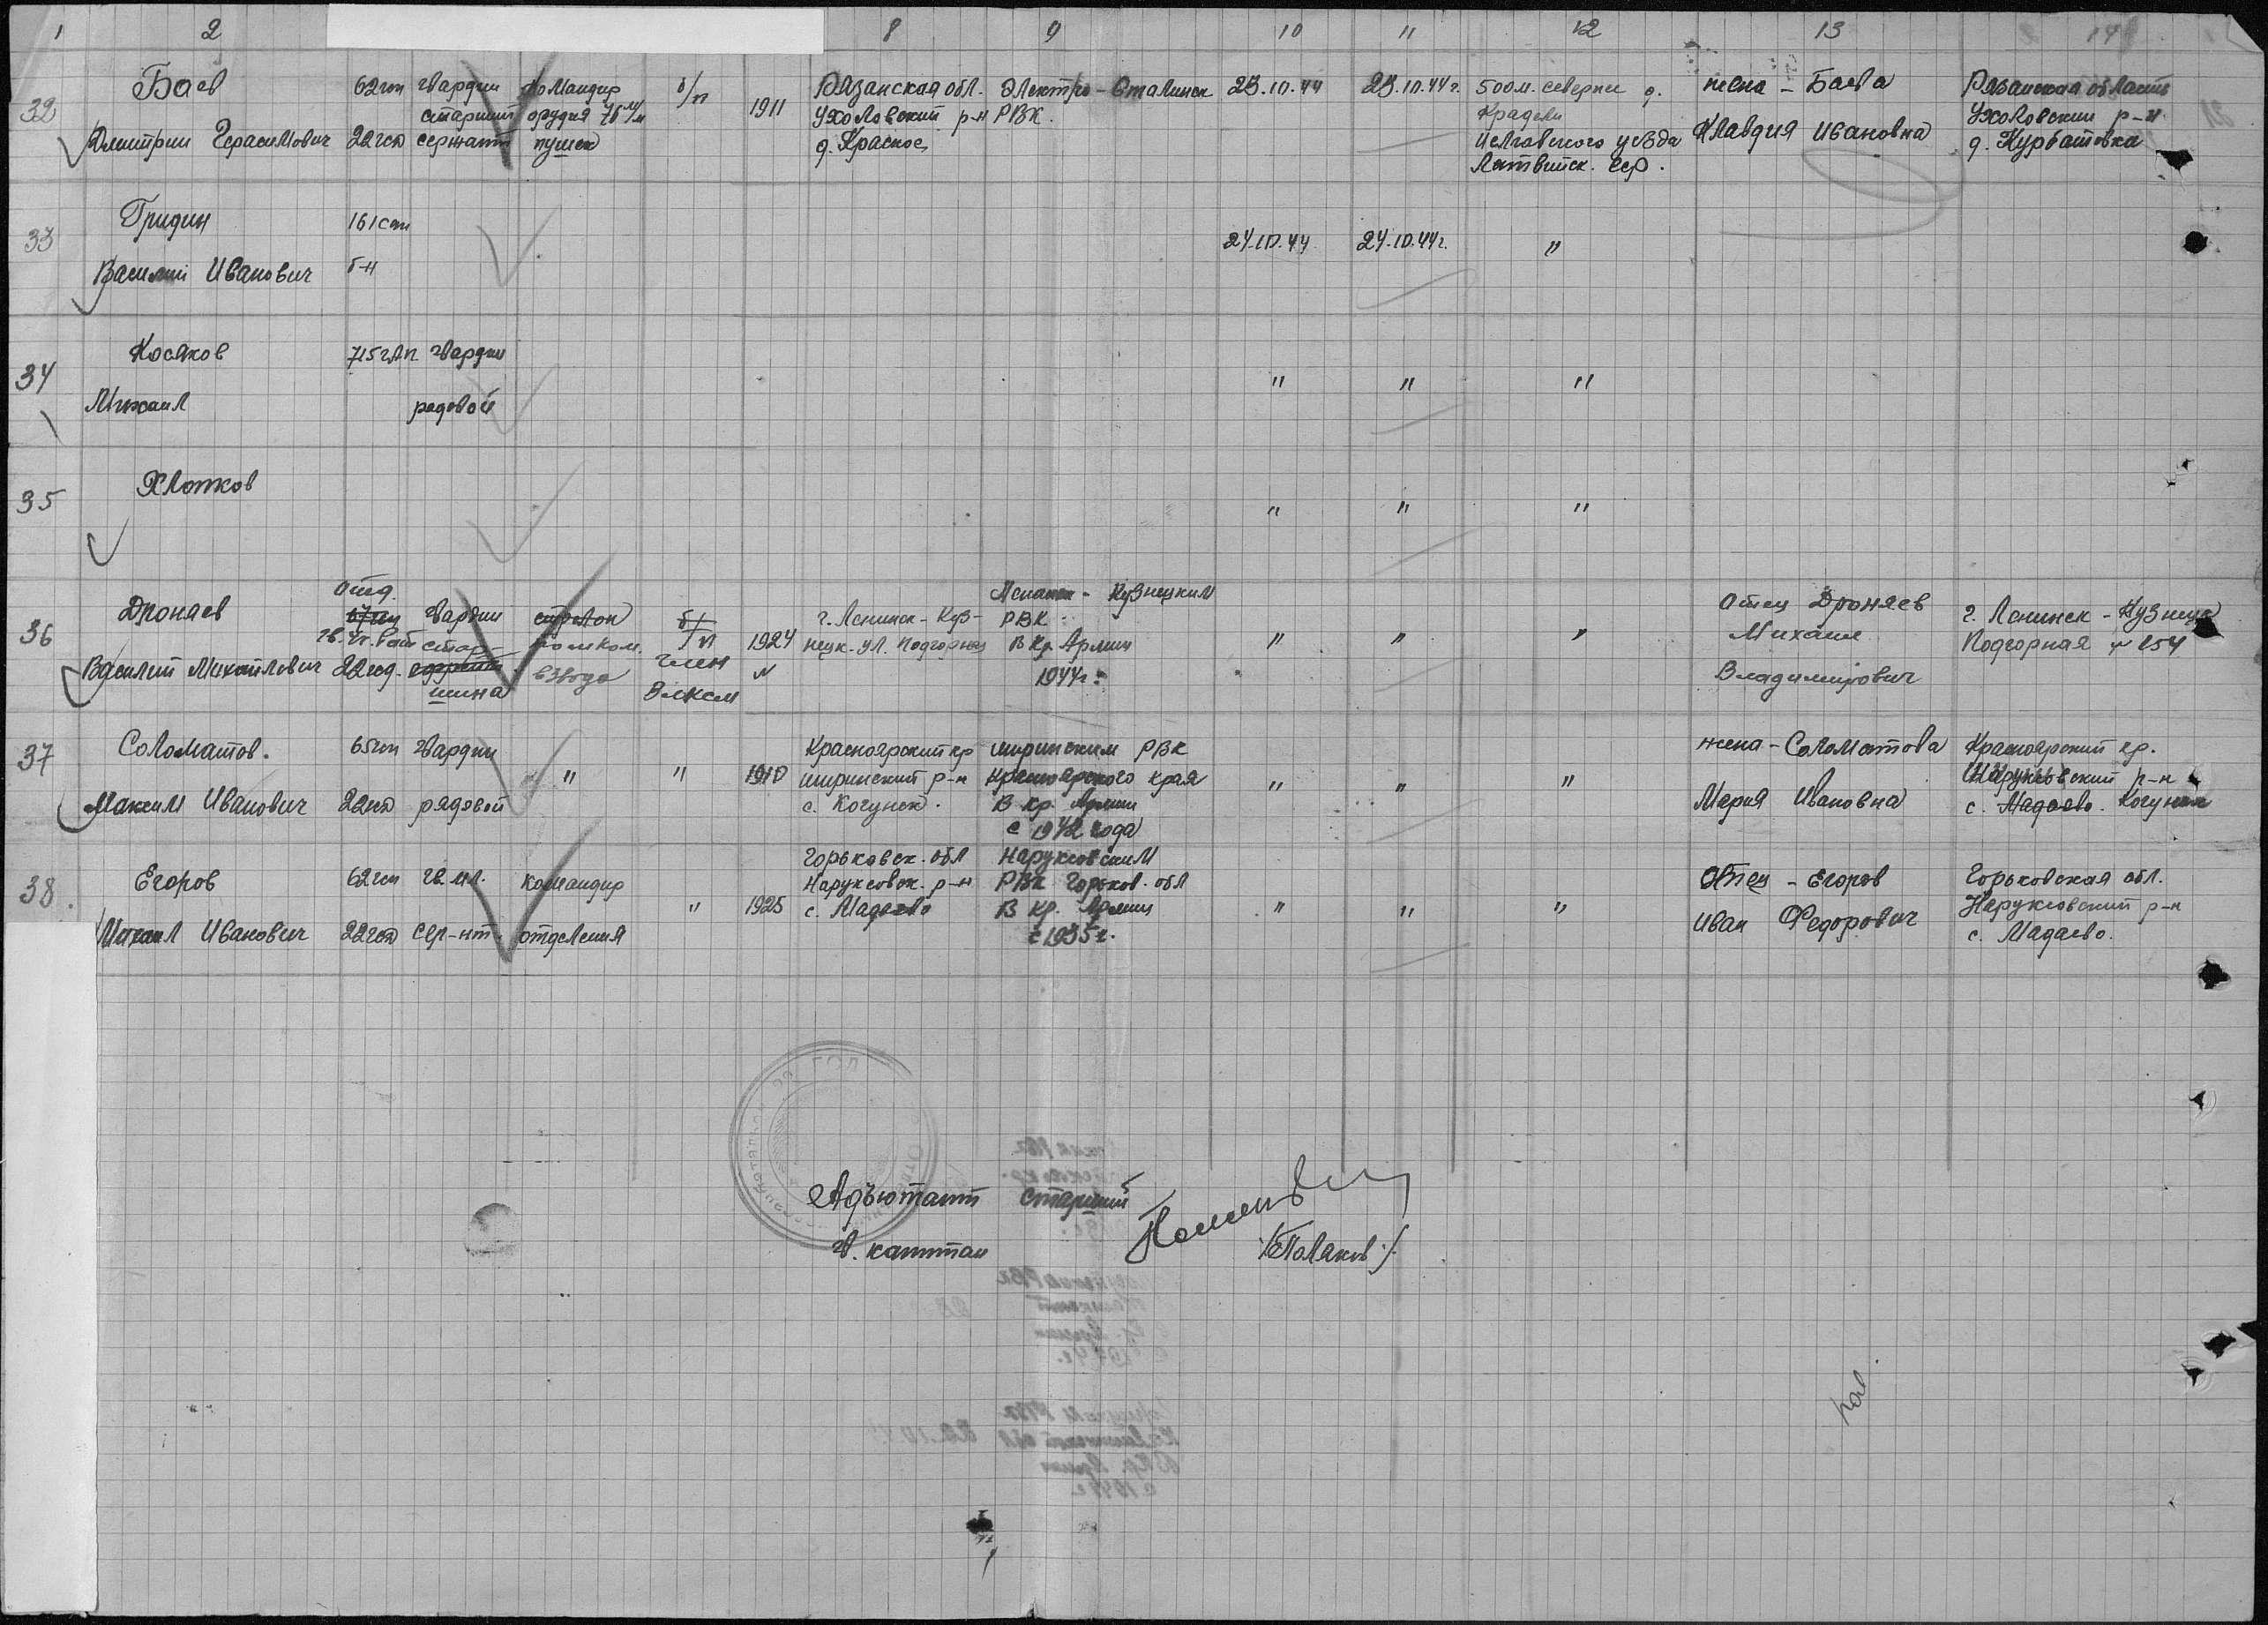 1 2 8 9 10 11 12 13 14
32
Баев
Дмитрий Герасимович
62 гсп
22 гсд
гвардии
старший
сержант
командир
орудия 76 м/м
пушек
б/п
1911
Рязанская обл.
Ухоловский р-н
д. Красное
Электро-Сталинск
РВК.
23.10.44
23.10.44 г.
500 м. севернее д.
Крадели
Иелгавского уезда
Латвийск. ССР.
жена - Баева
Клавдия Ивановна
Рязанская область
Ухоловский р-н
д. Курбатовка
33
Гридин
Василий Иванович
161 сап
б-н
24.10.44
24.10.44 г.
"
34
Косяков
Михаил
715 гап
гвардии
рядовой
" " "
35
Хлопков
" " "
36
Дроняев
Василий Михайлович
Отд.
67 гсп
22 гсд.
гвардии
стар-
шина
стрелок
помком.
взвода
б/п
член
ВЛКСМ
1924
г. Ленинск-Куз-
нецк. ул. Подгорная
Ленинск-Кузнецким
РВК
В Кр. Армии
1944 г.
" " "
Отец Дроняев
Михаил
Владимирович
г. Ленинск-Кузнецк
Подгорная
37
Соломатов.
Максим Иванович
65 гсп
22 гсд
гвардии
рядовой
"
"
1910
Красноярский кр
ширинский р-н
с. Когунек.
ширинским РВК
Красноярского края
В кр. Армии
с 1942 года
" " "
жена - Соломатова
Мария Ивановна
Красноярский кр.
р-н
с. Мадаево. Когунек
38.
Егоров
Михаил Иванович
62 гсп
22 гсд
гв. мл.
сер-нт.
командир
отделения
"
1925
Горьковск. обл
Наруксовск. р-н
с. Мадаево
Наруксовским
РВК Горьков. обл
В кр. Армии
с 1935 г.
" " "
Отец - Егоров
Иван Федорович
Горьковская обл.
Наруксовский р-н
с. Мадаево.
Адъютант старший
гв. капитан
/Поляков/